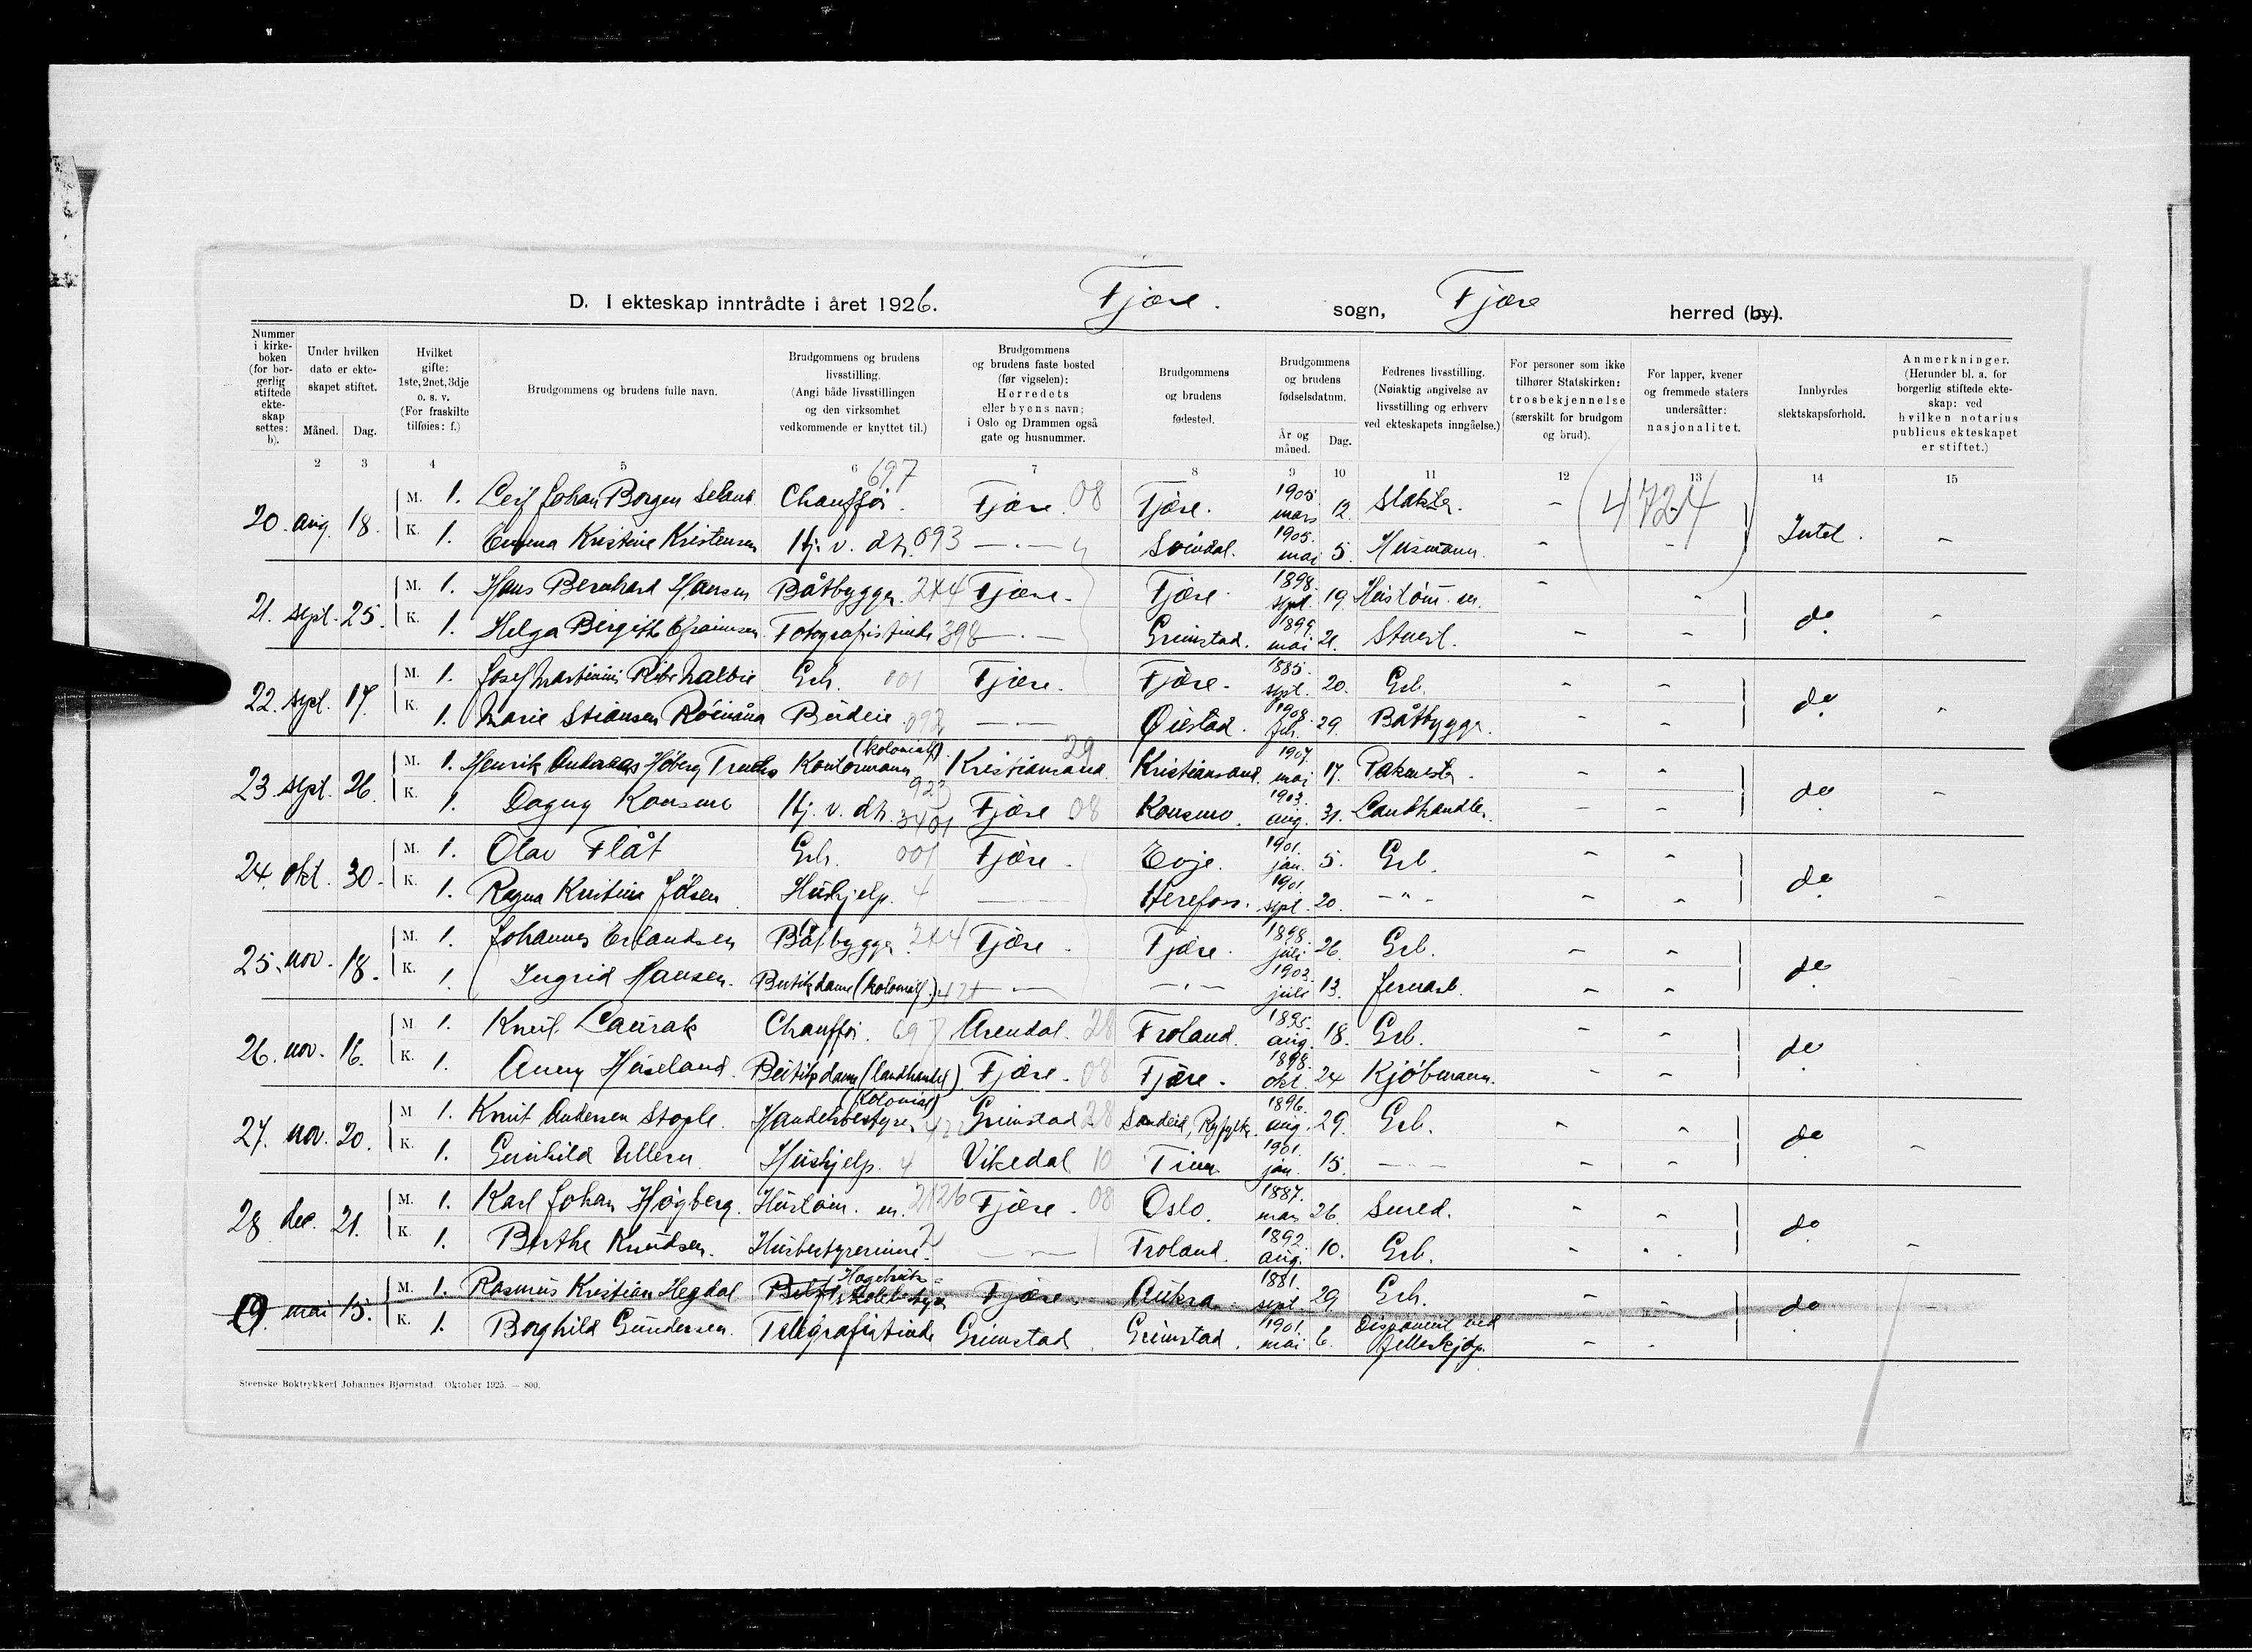 D. I ekteskap inntrådte i året 1926. Fjære. sogn, Fjære herred (by).
Nummer i kirkeboken (for borgerlig stiftede ekteskap settes: b).
Under hvilken dato er ekteskapet stiftet.
Måned. Dag.
Hvilket gifte: 1ste, 2net, 3dje o. s. v. (For fraskilte tilføies: f.)
Brudgommens og brudens fulle navn.
Brudgommens og brudens livsstilling. (Angi både livsstillingen og den virksomhet vedkommende er knyttet til.)
Brudgommens og brudens faste bosted (før vigselen): Herredets eller byens navn; i Oslo og Drammen også gate og husnummer.
Brudgommens og brudens fødested.
Brudgommens og brudens fødselsdatum.
År og måned. Dag.
Fedrenes livsstilling. (Nøiaktig angivelse av livsstilling og erhverv ved ekteskapets inngåelse.)
For personer som ikke tilhører Statskirken: trosbekjennelse (særskilt for brudgom og brud).
For lapper, kvener og fremmede staters undersåtter: nasjonalitet.
Innbyrdes slektskapsforhold.
Anmerkninger. (Herunder bl. a. for borgerlig stiftede ekteskap: ved hvilken notarius publicus ekteskapet er stiftet.)
2 3 4 5 6 7 8 9 10 11 12 13 14 15
697 4724
20. aug. 18. M. 1. Leif Johan Borgen Seland Chauffør. Fjære. 08 Fjære. 1905. mars 12. Slakter. - Intet.
K. 1. Emma Kristine Kristensen Hj. v. d h. 093 —.— Søndal. 1905. mai 5. Husmann. - - -
21. sept. 25. M. 1. Hans Bernhard Hansen Båtbygger. 244 Fjære. Fjære. 1898. sept. 19. Hustøm. - - do
K. 1. Helga Bergithe Efraimsen. Fotografistinde 398 —.— Grimstad. 1899. mai 21. Stuert. - - -
22. sept. 17. M. 1. Josef Martinius Ribe Nalbie Grb. 001 Fjære. Fjære. 1885. sept. 20. Grb. - - do
K. 1. Marie Stiansen Budeie. 092 —.— Øiestad. 1908. feb. 29. Båtbygger. - - -
23. sept. 26. M. 1. Henrik Andreas Høberg Kontormann (kolonialf). Kristiansand. 29 Kristiansand. 1907. mai 17. Pakmester. - - do
K. 1. Dagny Konsmo Hj. v. d h. 923 3401 Fjære 08 Konsmo. 1903. aug. 31. Landhandler. - - -
24. okt. 30. M. 1. Olav Flåt Grb. 001 Fjære. Evje. 1901. jan. 5. Grb. - - do
K. 1. Ragna Kristine Jølsen. Hushjelp. 4 —— Herefoss. 1901. sept. 20. -"- - - -
25. nov. 18. M. 1. Johannes Erlandsen Båtbygger 244 Fjære Fjære. 1898. juli 26. Grb. - - do
K. 1. Ingrid Hansen. Butikdame (kolonialf.) 421 —.— —.— 1903. juli 13. Jernarb. - - -
26. nov. 16. M. 1. Knut Laurak Chauffør. 697 Arendal. 28 Froland. 1895. aug. 18. Grb. - - do
K. 1. Anny Huseland. Butikdame (landhandel) Fjære. 08 Fjære. 1898. okt. 24 Kjøbmann. - - -
27. nov. 20. M. 1. Knut Andersen Stople. Handelsbestyrer (kolonial) 422 Grimstad 28 Sandeid, Ryfylke. 1896. aug. 29. Grb. - - do
K. 1. Gunhild Ullern Hushjelp. 4 Vikedal 10 1901. jan. 15. —— - - -
28 dec. 21. M. 1. Karl Johan Høgberg. Hustøm. 2126 Fjære. 08 Oslo. 1887. mars 26. Smed. - - do
K. 1. Berthe Knudsen. Husbestyrerinne. 2 —— Froland. 1892. aug. 10. Grb. - - -
19. mai 15. M. 1. Rasmus Kristian Hegdal Hagebruks= skolebestyrer Fjære. Aukra. 1881. sept. 29 Grb. - - do
K. 1. Borghild Gundersen. Telegrafistinde Grimstad. Grimstad. 1901. mai 6. Disponent ved Felleskjøp. - - -
Steenske Boktrykkeri Johannes Bjørnstad. Oktober 1925. — 800.